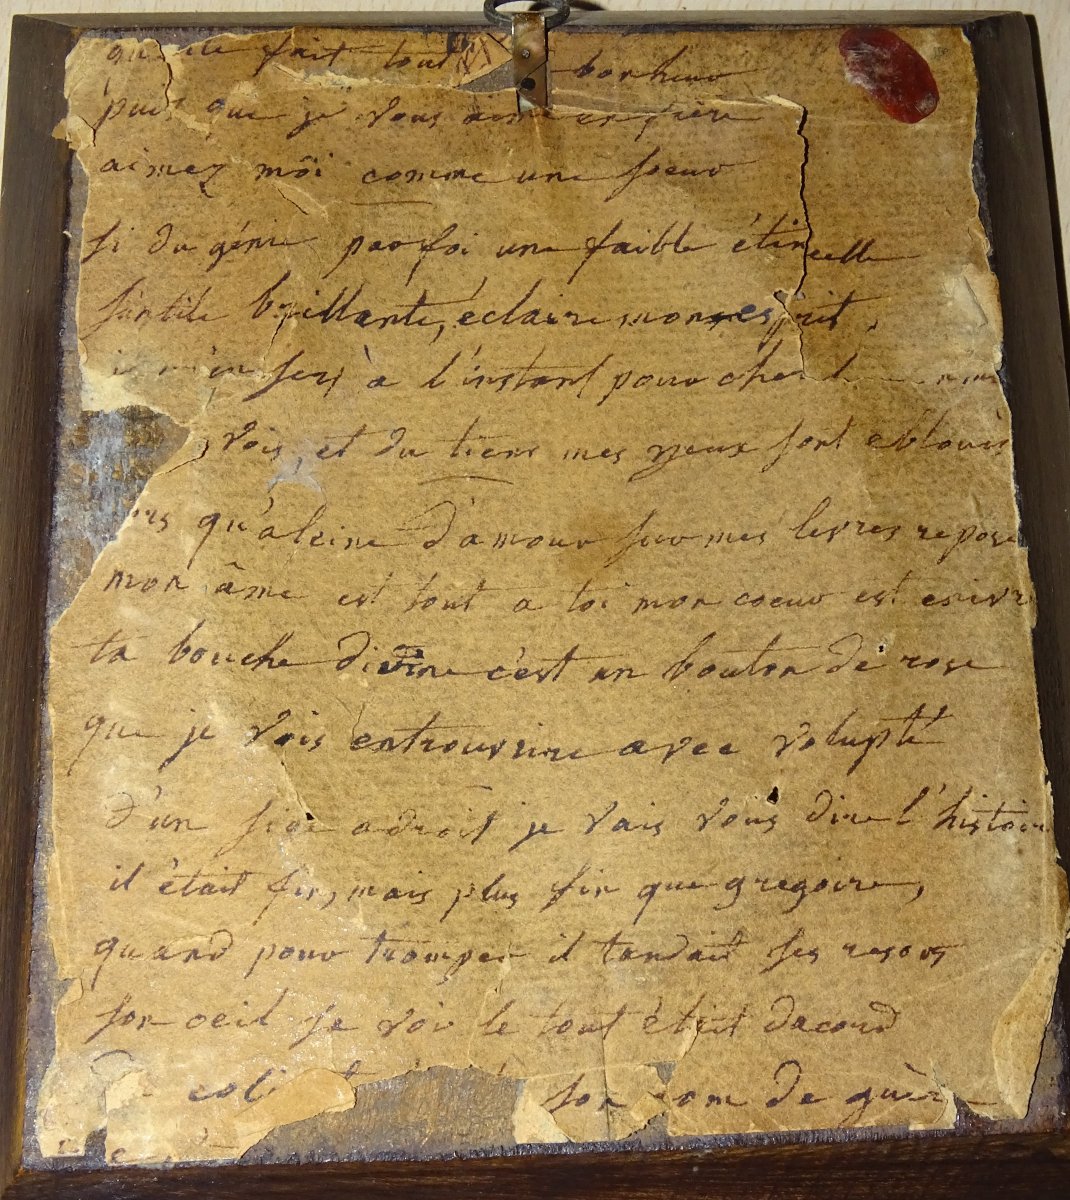 fait tout bonheur
puis que je vous aime en frère
aimez môi comme une soeur
si du génie parfoi une faible étincelle
brillante, éclaire mon esprit,
m'en sers à l'instant pour
vois, et du tiens mes yeux sont eblouis
qu'aleine d'amour sur mes levres repose
mon âme est tout a toi mon coeur est enivré
ta bouche divine c'est un bouton de rose
que je vois entrouvrire avec volupté
d'un adroit je vais vous dire l'histoire
il était fin, mais plus fin que gregoire,
quand pour tromper il tandait ses resors
son oeil le tout était dacord
son nom de guère